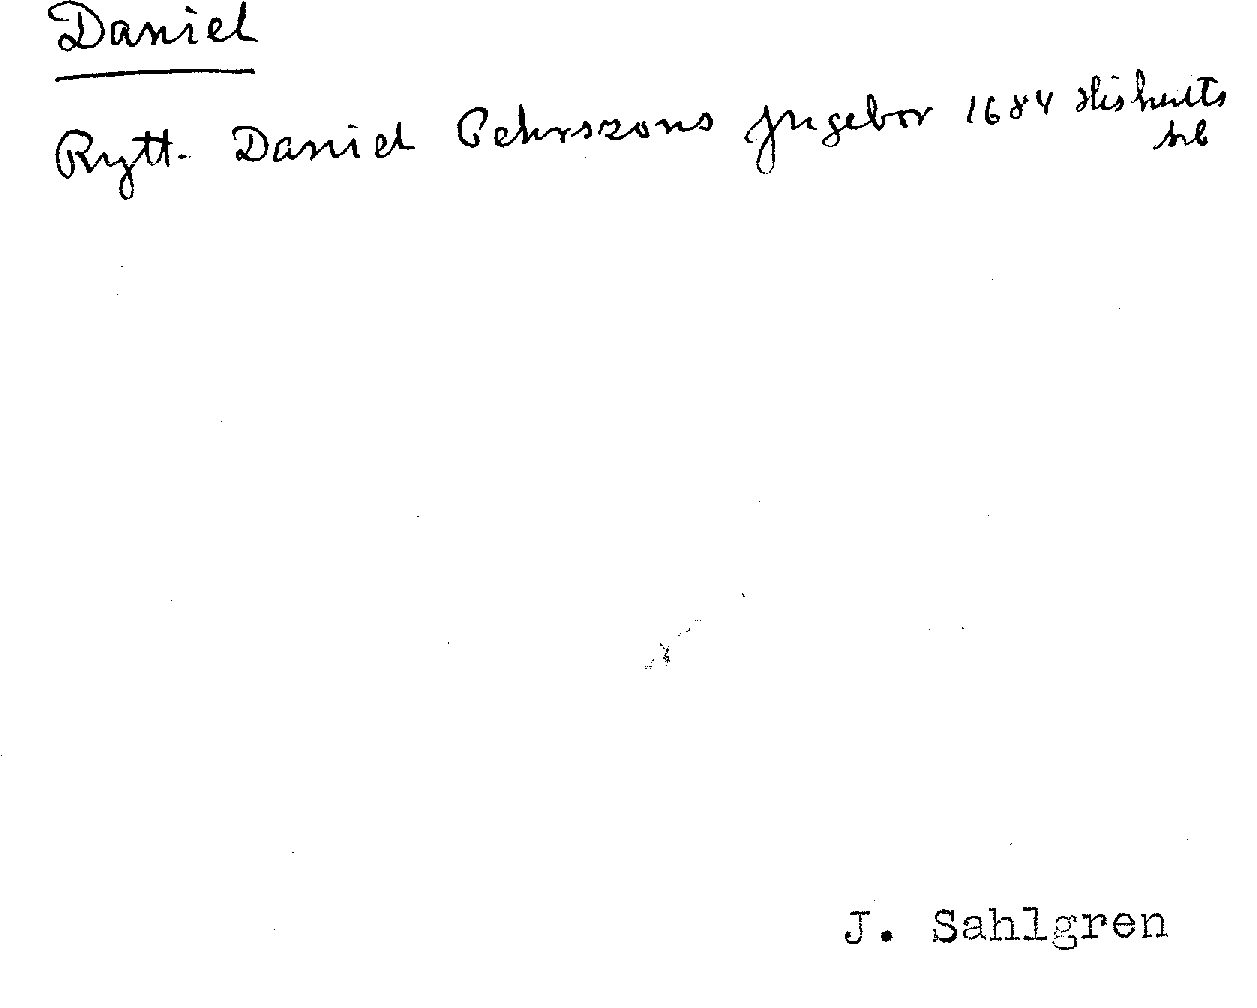 Daniel
Rytt. Daniel Pehrszons Jngebor 1684 Hishults
srb
J. Sahlgren